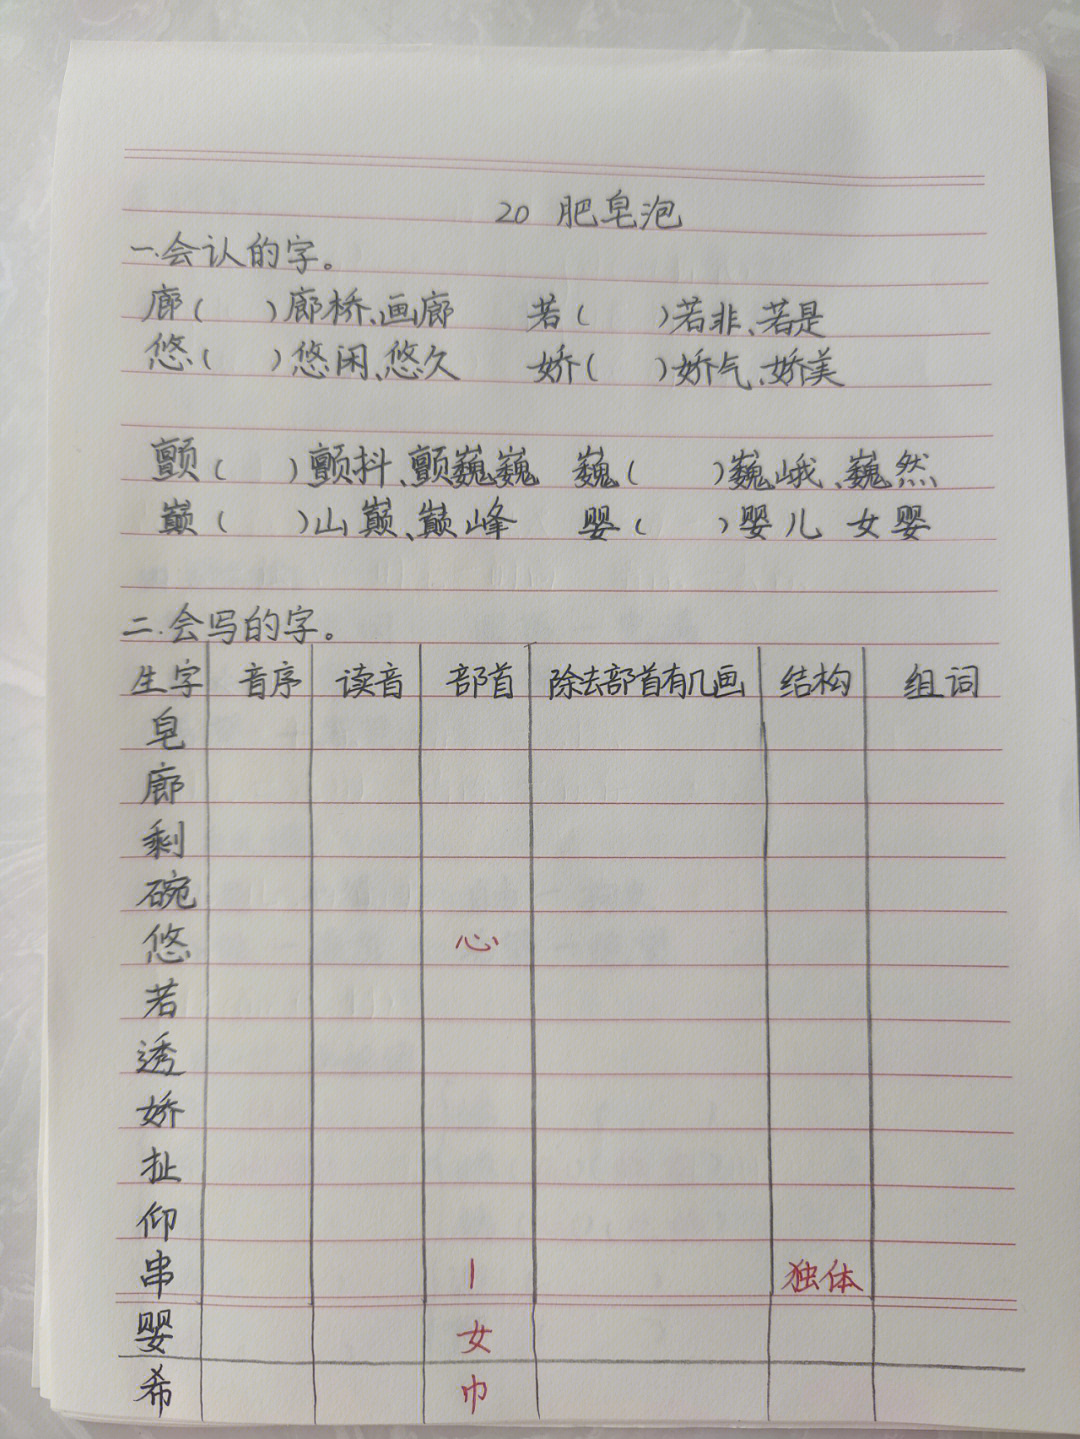 20 肥皂泡
一.会认的字。
廊( )廊桥、画廊 若( )若非、若是
悠( )悠闲、悠久 娇( )娇气、娇美
颤( )颤抖、颤巍巍 巍( )巍峨、巍然
巅( )山巅、巅峰 婴( )婴儿 女婴
二.会写的字。
生字 音序 读音 部首 除去部首有几画 结构 组词
皂
廊
剩
碗
悠 心
若
透
娇
扯
仰
串 丨 独体
婴 女
希 巾